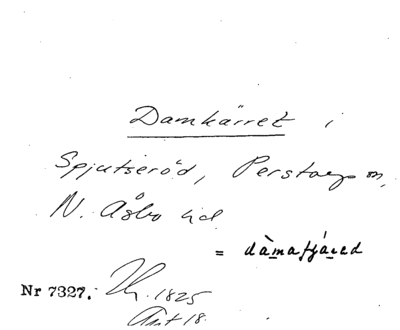 Damkärret i
Spjutseröd, Perstorps sn,
N. Åsbo hd
= dàmafjáred
Nr 7327. 1825
Akt 18.